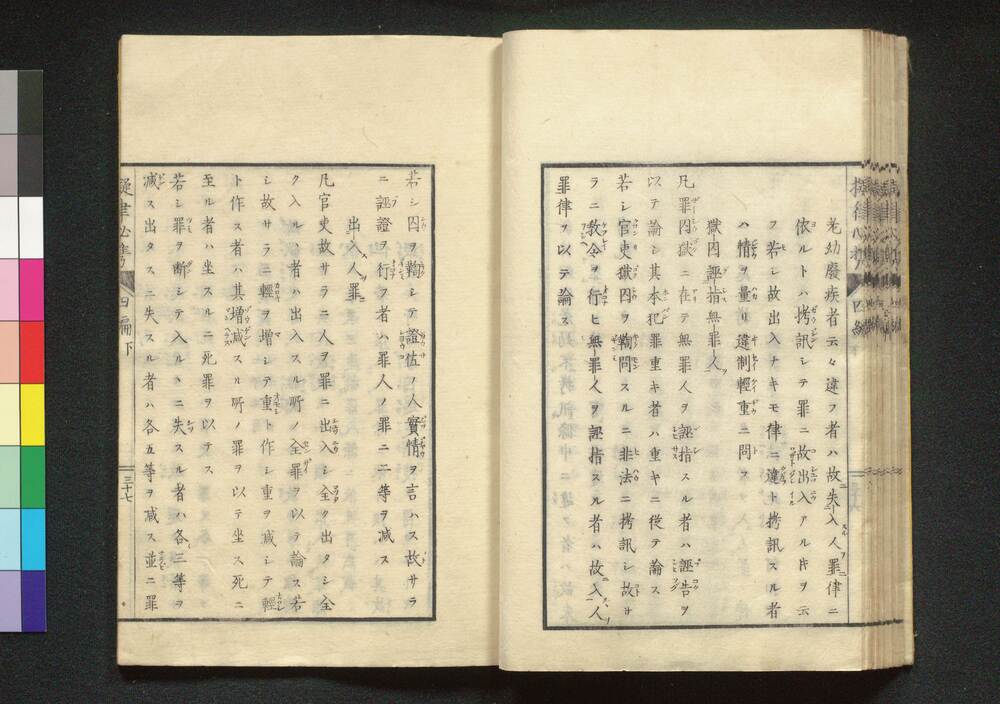 老幼廢疾者云々違フ者ハ故失入人罪律ニ
依ルトハ拷訊シテ罪ニ故出入アル片ヲ云
フ若シ故出入ナキモ律ニ違ト拷訊スル者
ハ情ヲ量リ違制輕重ニ問ス
獄囚誣指無罪人
凡罪囚獄ニ在テ無罪人ヲ誣指スル者ハ誣告ヲ
以テ論シ其本犯罪重キ者ハ重キニ從テ論ス
若シ官吏獄囚ヲ鞫問スルニ非法ニ拷訊シ故サ
ラニ教令ヲ行ヒ無罪人ヲ誣指スル者ハ故入人
罪律ヲ以テ論ス
若シ囚ヲ鞫シテ證佐ノ人實情ヲ言ハス故サラ
ニ誣證ヲ行フ者ハ罪人ノ罪ニ二等ヲ减ス
出入人罪
凡官吏故サラニ人ヲ罪ニ出入シ全ク出タシ全
ク入ルヽ者ハ出入スル所ノ全罪ヲ以テ論ス若
シ故サラニ輕ヲ增シテ重ト作シ重ヲ减シテ輕
ト作ス者ハ其增减スル所ノ罪ヲ以テ坐ス死ニ
至ル者ハ坐スルニ死罪ヲ以テス
若シ罪ヲ斷シテ入ルヽニ失スル者ハ各三等ヲ
减ス出タスニ失スル者ハ各五等ヲ减ス並ニ罪
四編下
三十七